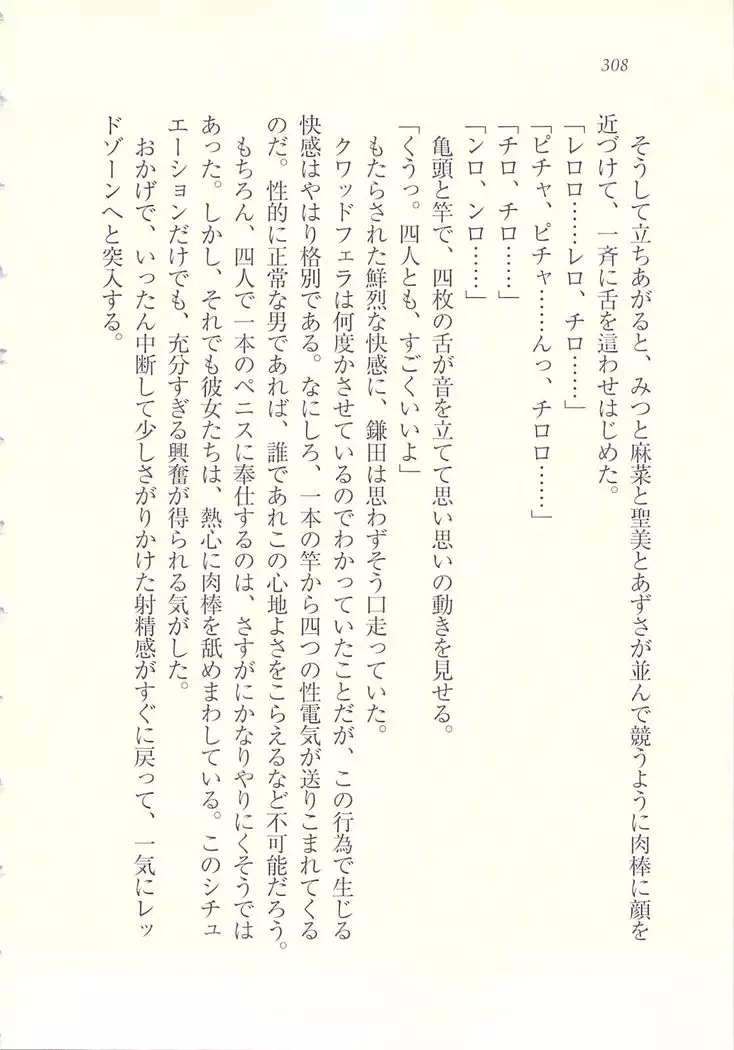 308
そうして立ちあがると、みつと麻菜と聖美とあずさが並んで競うように肉棒に顔を
近づけて、一斉に舌を這わせはじめた。
「レロロ……レロ、チロ……」
「ピチャ、ピチャ……んっ、チロロ……」
「チロ、チロ……」
「ンロ、ンロ……」
亀頭と竿で、四枚の舌が音を立てて思い思いの動きを見せる。
「くうっ。四人とも、すごくいいよ」
もたらされた鮮烈な快感に、鎌田は思わずそう口走っていた。
クワッドフェラは何度かさせているのでわかっていたことだが、この行為で生じる
快感はやはり格別である。なにしろ、一本の竿から四つの性電気が送りこまれてくる
のだ。性的に正常な男であれば、誰であれこの心地よさをこらえるなど不可能だろう。
もちろん、四人で一本のペニスに奉仕するのは、さすがにかなりやりにくそうでは
あった。しかし、それでも彼女たちは、熱心に肉棒を舐めまわしている。このシチュ
エーションだけでも、充分すぎる興奮が得られる気がした。
おかげで、いったん中断して少しさがりかけた射精感がすぐに戻って、一気にレッ
ドゾーンへと突入する。